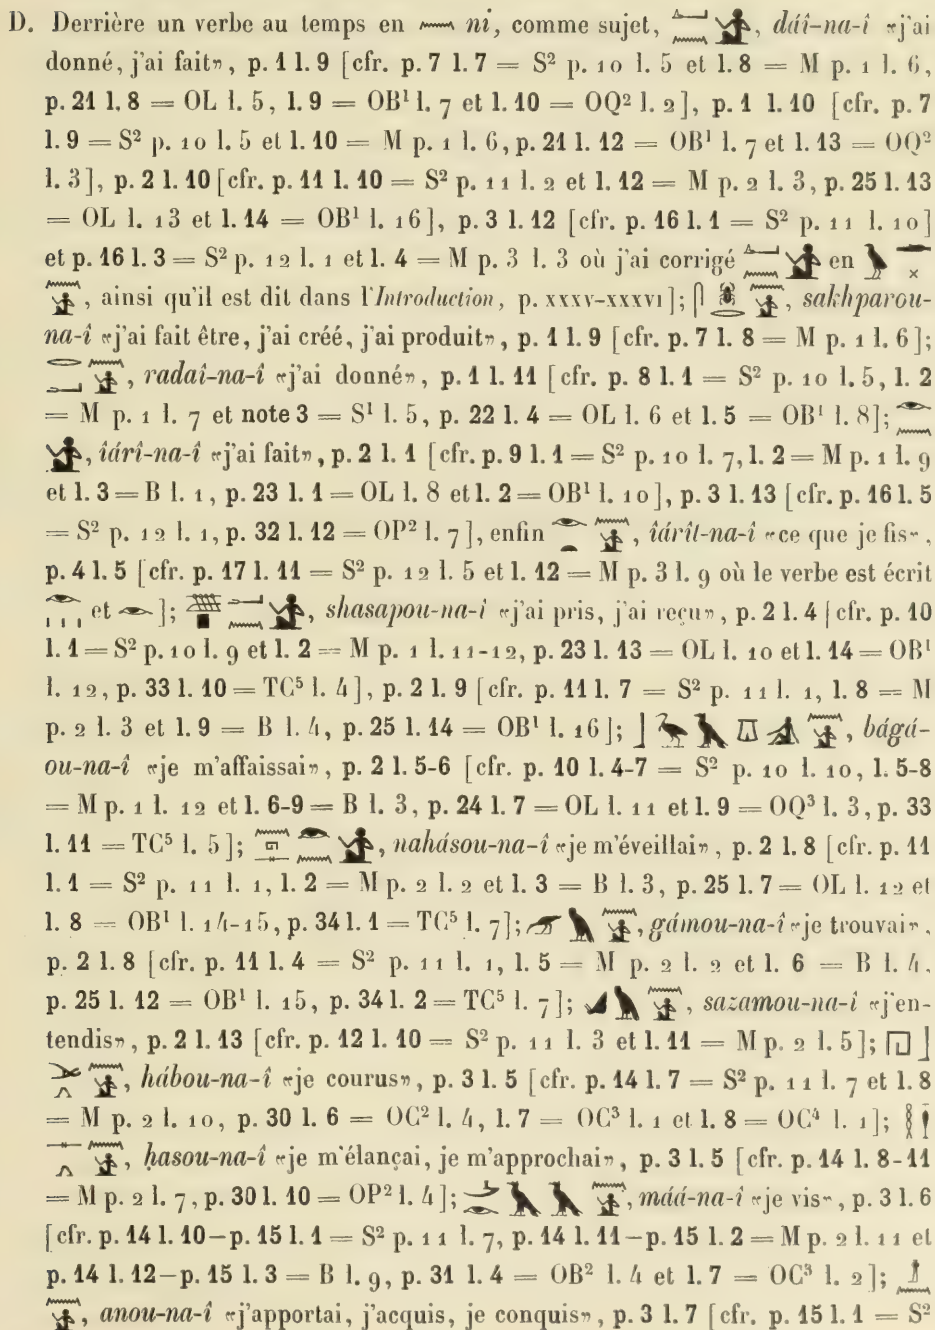 D. Derrière un verbe au temps en 𓈖 ni, comme sujet, 𓂞𓈖𓀀, dáî-na-î «j'ai
donné, j'ai fait», p. 1 l. 9 [cfr. p. 7 l. 7 = S² p. 10 l. 5 et l. 8 = M p. 1 l. 6,
p. 21 l. 8 = OL l. 5, l. 9 = OB¹ l. 7 et l. 10 = OQ² l. 2], p. 1 l. 10 [cfr. p. 7
l. 9 = S² p. 10 l. 5 et l. 10 = M p. 1 l. 6, p. 21 l. 12 = OB¹ l. 7 et l. 13 = OQ²
l. 3], p. 2 l. 10 [cfr. p. 11 l. 10 = S² p. 11 l. 2 et l. 12 = M p. 2 l. 3, p. 25 l. 13
= OL l. 13 et l. 14 = OB¹ l. 16], p. 3 l. 12 [cfr. p. 16 l. 1 = S² p. 11 l. 10]
et p. 16 l. 3 = S² p. 12 l. 1 et l. 4 = M p. 3 l. 3 où j'ai corrigé 𓂞𓈖𓀀 en
, ainsi qu'il est dit dans l'Introduction, p. xxxv-xxxvi]; 𓋴𓆣𓂋𓈖𓀀, sakhparou-
na-î «j'ai fait être, j'ai créé, j'ai produit», p. 1 l. 9 [cfr. p. 7 l. 8 = M p. 1 l. 6];
𓂋𓂞𓈖𓀀, radaî-na-î «j'ai donné», p. 1 l. 11 [cfr. p. 8 l. 1 = S² p. 10 l. 5, l. 2
= M p. 1 l. 7 et note 3 = S¹ l. 5, p. 22 l. 4 = OL l. 6 et l. 5 = OB¹ l. 8]; 𓁹𓈖
𓀀, îárî-na-î «j'ai fait», p. 2 l. 1 [cfr. p. 9 l. 1 = S² p. 10 l. 7, l. 2 = M p. 1 l. 9
et l. 3 = B l. 1, p. 23 l. 1 = OL l. 8 et l. 2 = OB¹ l. 10], p. 3 l. 13 [cfr. p. 16 l. 5
= S² p. 12 l. 1, p. 32 l. 12 = OP² l. 7], enfin 𓁹𓏏𓈖𓀀, îárît-na-î «ce que je fis»,
p. 4 l. 5 [cfr. p. 17 l. 11 = S² p. 12 l. 5 et l. 12 = M p. 3 l. 9 où le verbe est écrit
𓁹𓏏𓏥 et 𓁹]; 𓈖𓀀, shasapou-na-î «j'ai pris, j'ai reçu», p. 2 l. 4 [cfr. p. 10
l. 1 = S² p. 10 l. 9 et l. 2 = M p. 1 l. 11-12, p. 23 l. 13 = OL l. 10 et l. 14 = OB¹
l. 12, p. 33 l. 10 = TC⁵ l. 4], p. 2 l. 9 [cfr. p. 11 l. 7 = S² p. 11 l. 1, l. 8 = M
p. 2 l. 3 et l. 9 = B l. 4, p. 25 l. 14 = OB¹ l. 16]; 𓃀𓅡𓄿𓎼𓈖𓀀, bágá-
ou-na-î «je m'affaissai», p. 2 l. 5-6 [cfr. p. 10 l. 4-7 = S² p. 10 l. 10, l. 5-8
= M p. 1 l. 12 et l. 6-9 = B l. 3, p. 24 l. 7 = OL l. 11 et l. 9 = OQ³ l. 3, p. 33
l. 11 = TC⁵ l. 5]; 𓈖𓉔𓋴𓁹𓈖𓀀, nahásou-na-î «je m'éveillai», p. 2 l. 8 [cfr. p. 11
l. 1 = S² p. 11 l. 1, l. 2 = M p. 2 l. 2 et l. 3 = B l. 3, p. 25 l. 7 = OL l. 12 et
l. 8 = OB¹ l. 14-15, p. 34 l. 1 = TC⁵ l. 7]; 𓅠𓅓𓈖𓀀, gámou-na-î «je trouvai»,
p. 2 l. 8 [cfr. p. 11 l. 4 = S² p. 11 l. 1, l. 5 = M p. 2 l. 2 et l. 6 = B l. 4,
p. 25 l. 12 = OB¹ l. 15, p. 34 l. 2 = TC⁵ l. 7]; 𓄔𓅓𓈖𓀀, sazamou-na-î «j'en-
tendis», p. 2 l. 13 [cfr. p. 12 l. 10 = S² p. 11 l. 3 et l. 11 = M p. 2 l. 5]; 𓉔𓃀
𓂻𓈖𓀀, hábou-na-î «je courus», p. 3 l. 5 [cfr. p. 14 l. 7 = S² p. 11 l. 7 et l. 8
= M p. 2 l. 10, p. 30 l. 6 = OC² l. 4, l. 7 = OC³ l. 1 et l. 8 = OC⁴ l. 1]; 𓎛
𓋴𓂻𓈖𓀀, ḥasou-na-î «je m'élançai, je m'approchai», p. 3 l. 5 [cfr. p. 14 l. 8-11
= M p. 2 l. 7, p. 30 l. 10 = OP² l. 4]; 𓌳𓁹𓄿𓄿𓈖𓀀, máá-na-î «je vis», p. 3 l. 6
[cfr. p. 14 l. 10-p. 15 l. 1 = S² p. 11 l. 7, p. 14 l. 11-p. 15 l. 2 = M p. 2 l. 11 et
p. 14 l. 12-p. 15 l. 3 = B l. 9, p. 31 l. 4 = OB² l. 4 et l. 7 = OC³ l. 2]; 𓏎
𓈖𓀀, anou-na-î «j'apportai, j'acquis, je conquis», p. 3 l. 7 [cfr. p. 15 l. 1 = S²